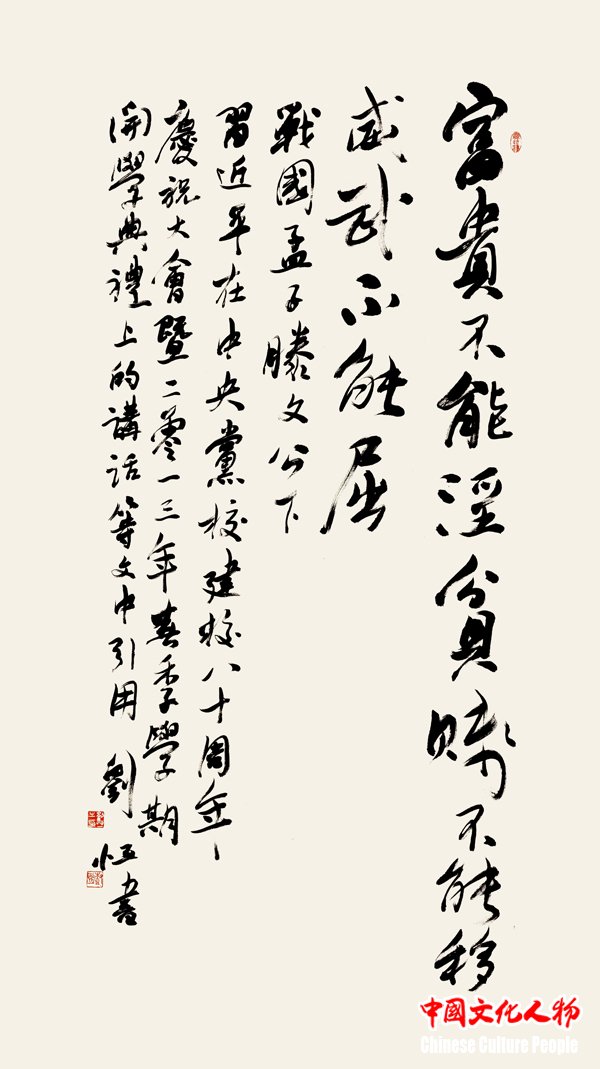 富貴不能淫貧賤不能移
威武不能屈
戰國孟子滕文公下
習近平在中央黨校建校八十周年
慶祝大會暨二零一三年春季學期
開學典禮上的講話等文中引用
劉恒書
中國文化人物
Chinese Culture People